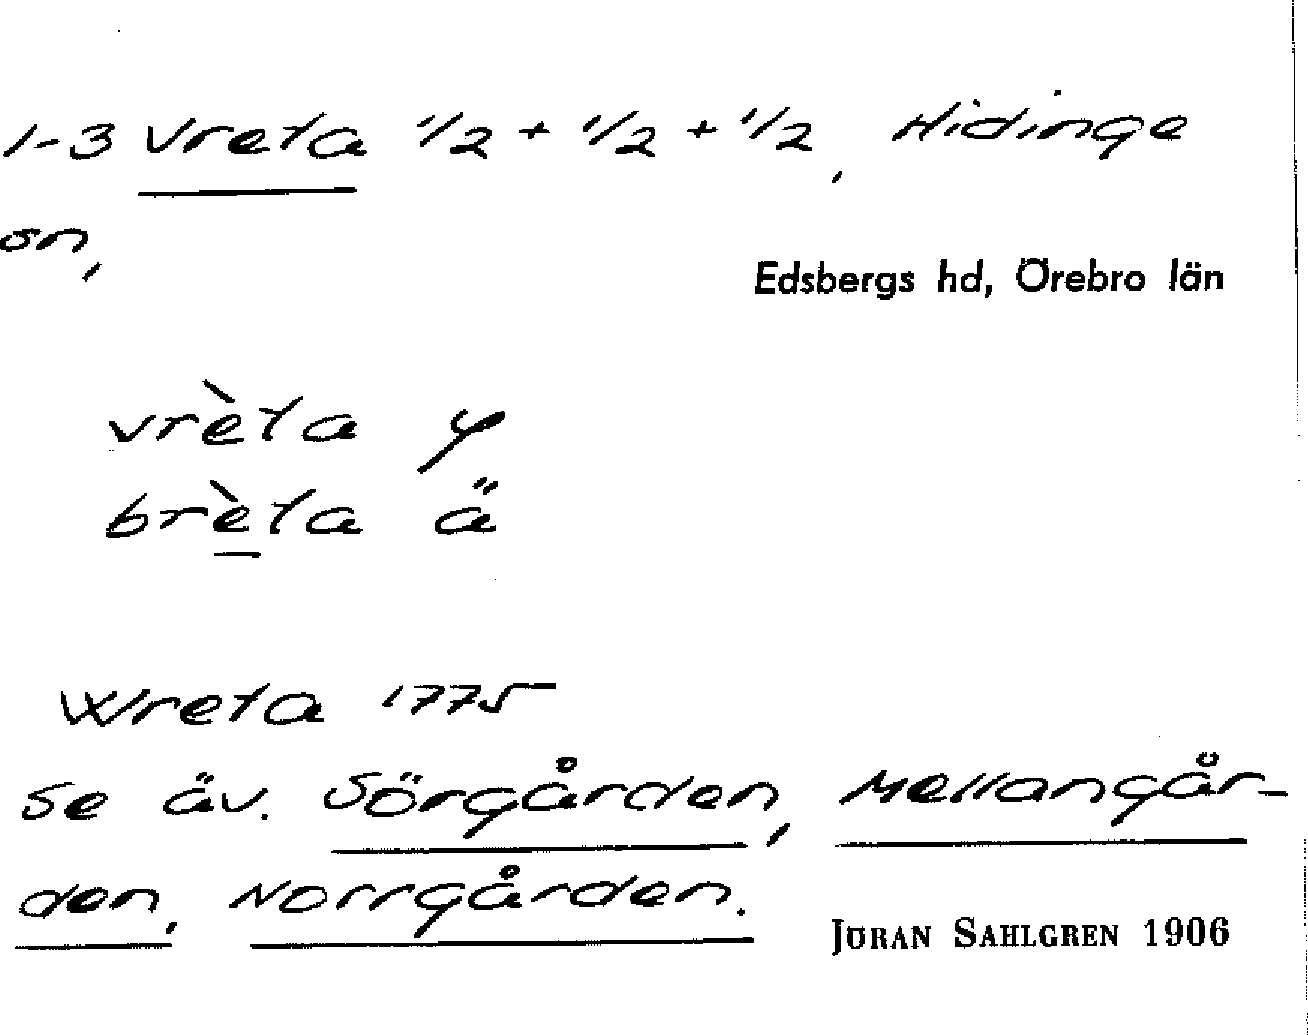 1-3 Vreta 1/2 + 1/2 + 1/2, Hidinge
sn,
Edsbergs hd, Örebro län
vrèta y
brèta ä
Wreta 1775
se äv. Sörgården, Mellangår-
den, Norrgården.
JÖRAN SAHLGREN 1906